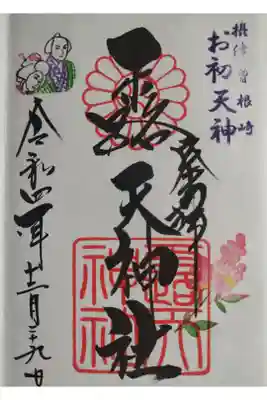 摂津 曽根崎
お初天神
奉拝
露天神社
露天神社
令和四年十二月二十九日